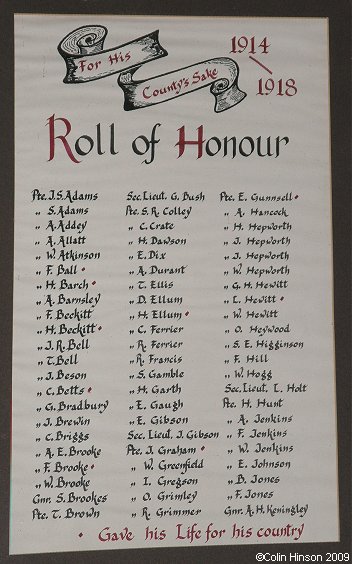 For His
County's Sake
1914
1918
Roll of Honour
Pte. J. S. Adams
„ S. Adams
„ A. Addey
„ A. Allatt
„ W. Atkinson
„ F. Ball •
„ H. Barch •
„ A. Barnsley
„ F. Beckitt
„ H. Beckitt •
„ J. R. Bell
„ T. Bell
„ J. Beson
„ C. Betts •
„ G. Bradbury
„ J. Brewin
„ C. Briggs
„ A. E. Brooke
„ F. Brooke •
„ W. Brooke
Gnr. S. Brookes
Pte. T. Brown
Sec. Lieut. G. Bush
Pte. S. R. Colley
„ C. Crate
„ H. Dawson
„ E. Dix
„ A. Durant
„ T. Ellis
„ D. Ellum
„ H. Ellum •
„ C. Ferrier
„ R. Ferrier
„ R. Francis
„ S. Gamble
„ H. Garth
„ E. Gaugh
„ E. Gibson
Sec. Lieut. J. Gibson
Pte. J. Graham •
„ W. Greenfield
„ I. Gregson
„ O. Grimley
„ R. Grimmer
Pte. E. Gunnsell •
„ A. Hancock
„ H. Hepworth
„ J. Hepworth
„ J. Hepworth
„ W. Hepworth
„ G. H. Hewitt
„ L. Hewitt •
„ W. Hewitt
„ O. Heywood
„ S. E. Higginson
„ F. Hill
„ W. Hogg
Sec. Lieut. L. Holt
Pte. H. Hunt
„ A. Jenkins
„ F. Jenkins
„ W. Jenkins
„ E. Johnson
„ B. Jones
„ F. Jones
Gnr. A. H. Keningley
• Gave his Life for his country
©Colin Hinson 2009